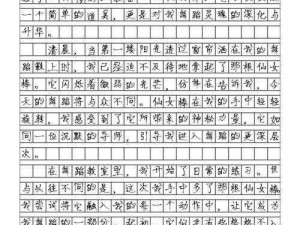 一个简单的道具，更是对我舞蹈灵魂的深化与
升华。
清晨，当第一缕阳光透过窗帘洒在我的舞
蹈鞋上时，我已经迫不及待地拿起了那根仙女
棒。它闪烁着微弱的光芒，仿佛在告诉我，今
天的舞蹈将与众不同。仙女棒在我的手中轻轻
旋转，我感受到了它所带来的神秘力量，它如
同一位沉默的导师，引导我进入舞蹈的更深层
次。
在舞蹈教室里，我开始了日常的练习。但
与以往不同的是，这次我手中多了那根仙女棒。
我尝试将它融入我的每一个动作中，让它成为
我舞蹈的一部分。起初，它